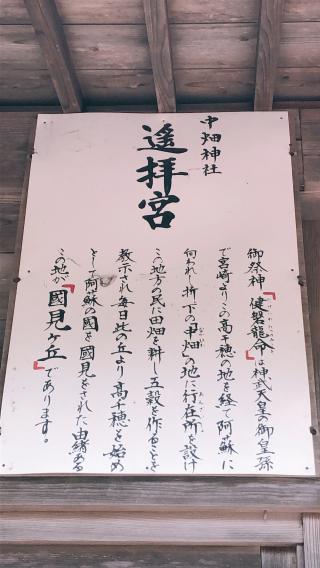 中畑神社
遥拝宮
御祭神「健磐龍命」は神武天皇の御皇孫
で宮崎よりこの高千穂の地を経て阿蘇に
向われ、折下の中畑の地に行在所を設け
この地方の民に田畑を耕し五穀を作ることを
教示され毎日此の丘より高千穂を始め
として阿蘇の國を國見をされた由緒ある
この地が「國見ヶ丘」であります。